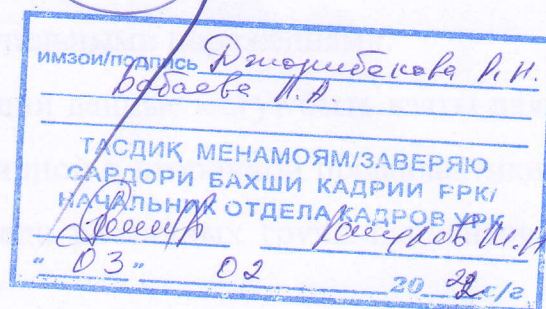 имзои/подпись Джорибекова Р. Н.
Бабаева Н.А
ТАСДИҚ МЕНАМОЯМ/ЗАВЕРЯЮ
САРДОРИ БАХШИ КАДРИИ РРК/
НАЧАЛЬНИК ОТДЕЛА КАДРОВ УРК
"03" 02 20 22 с/г